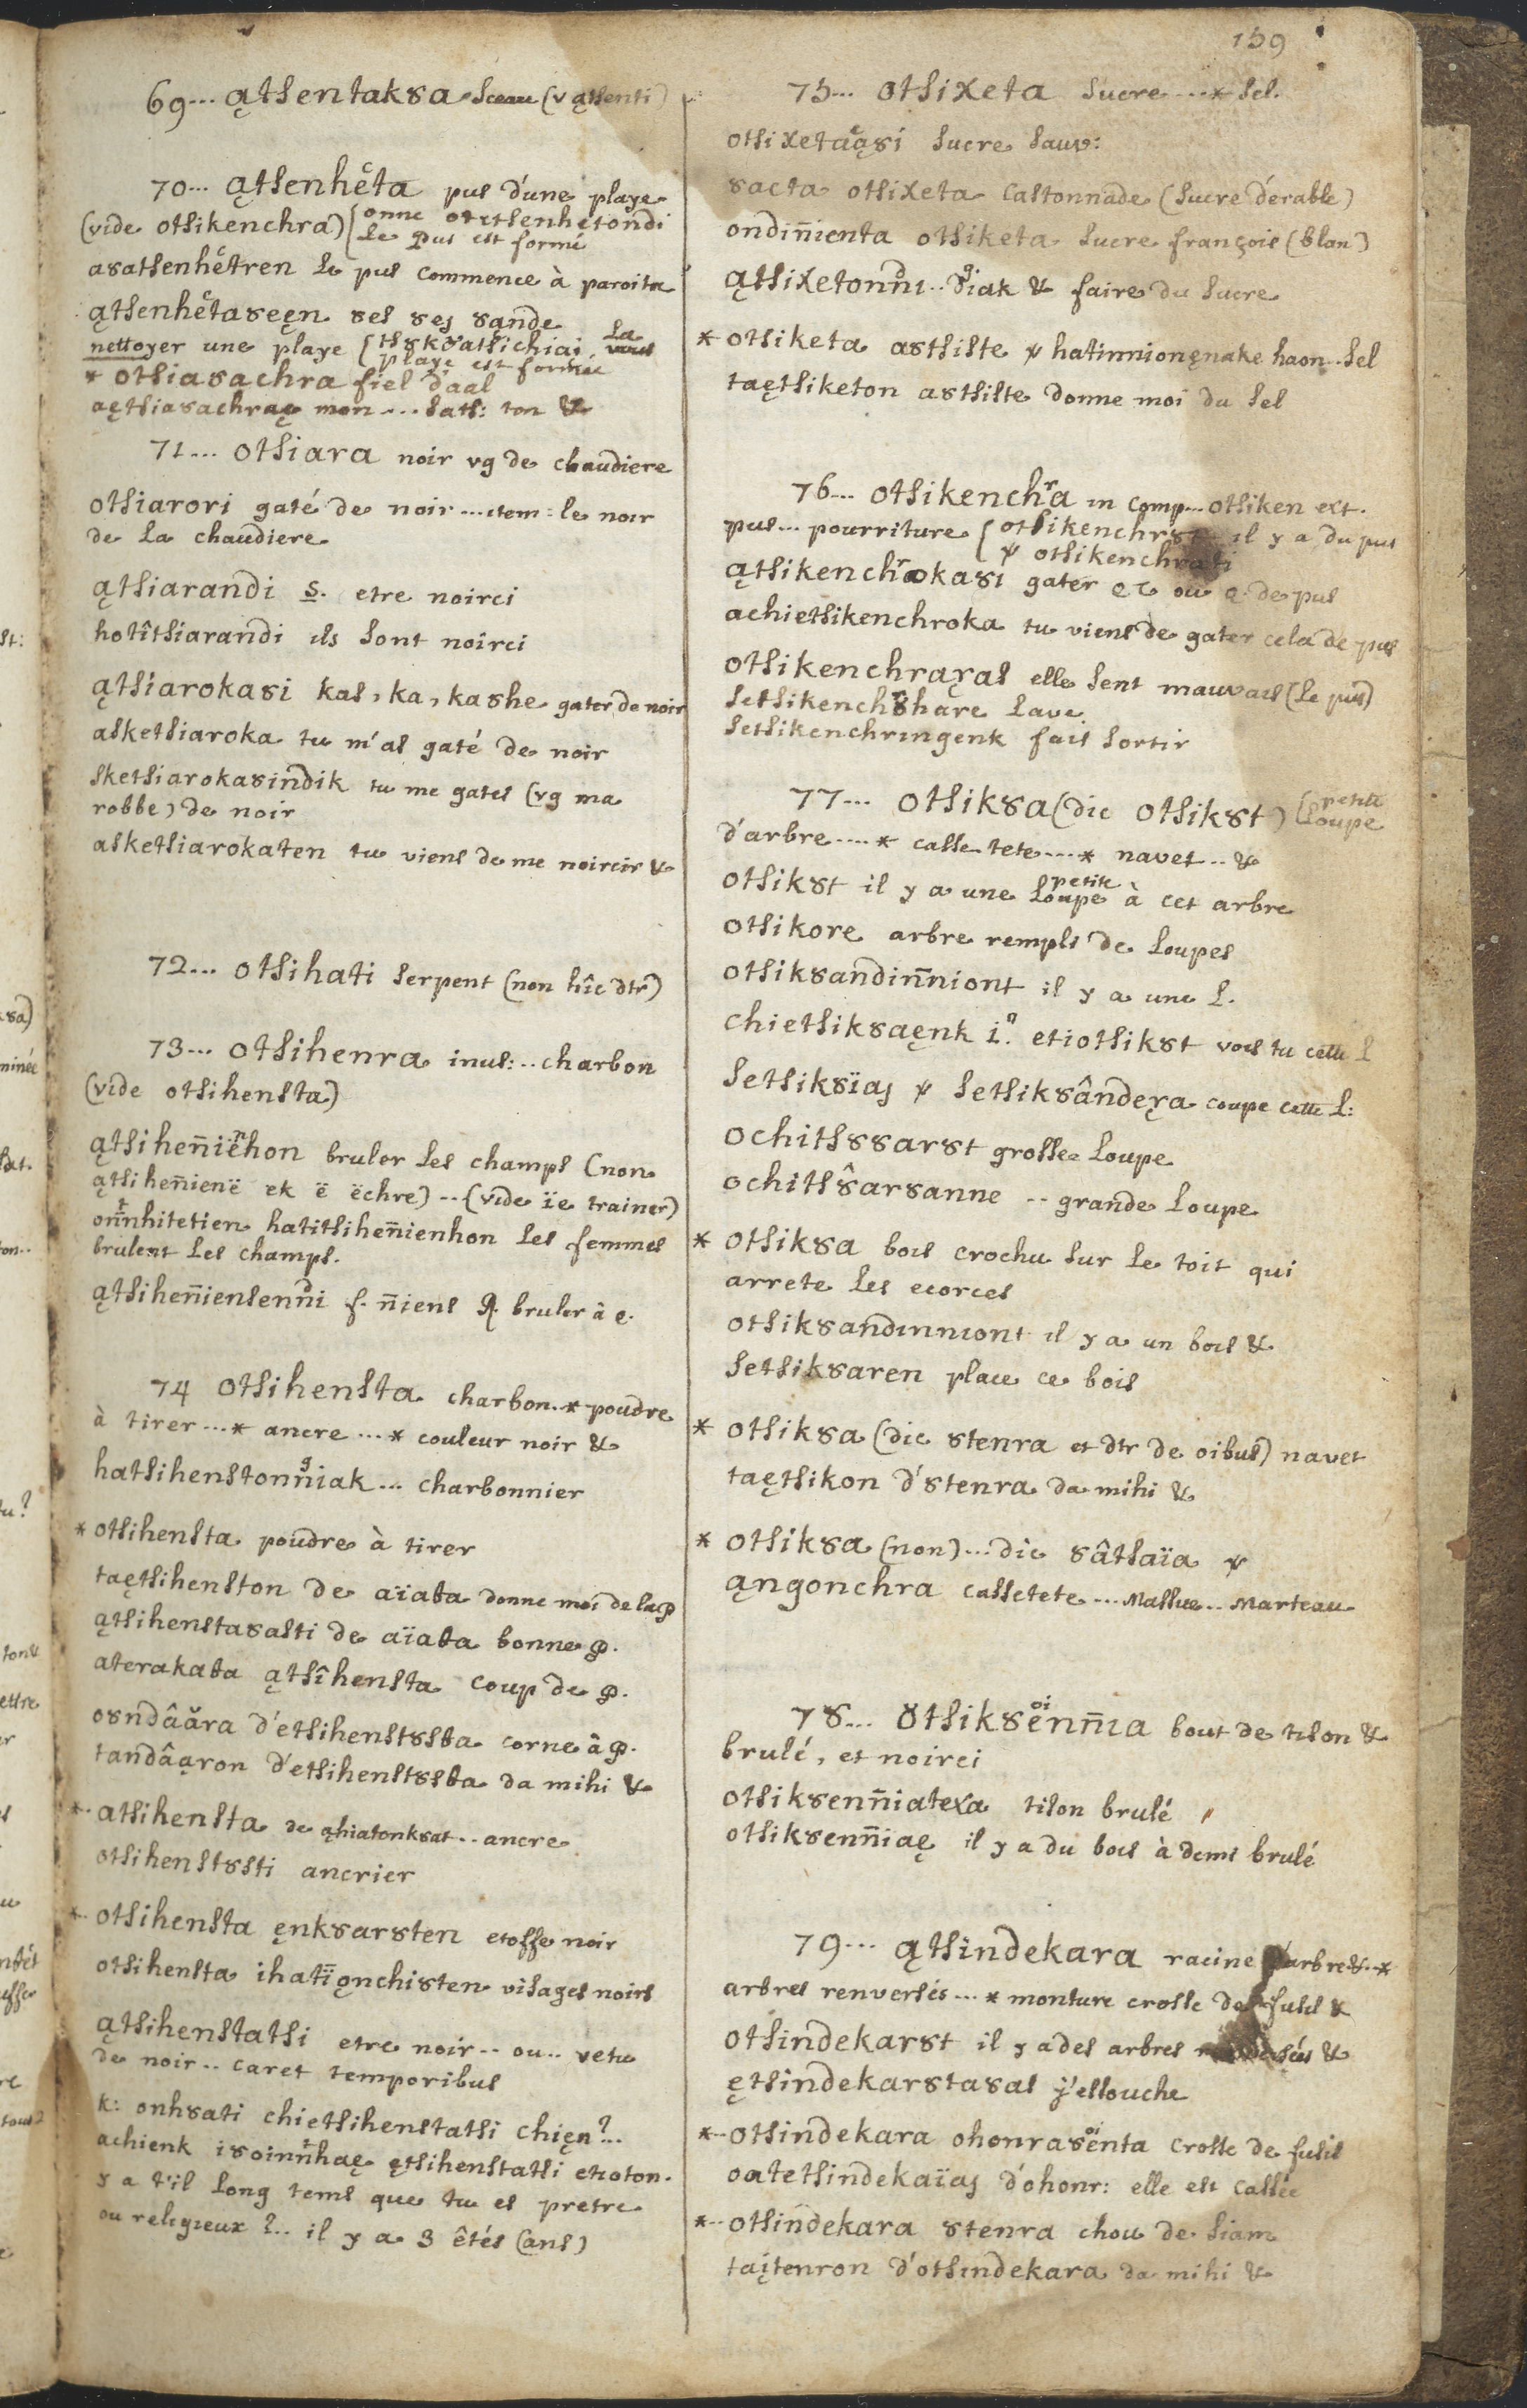 159
69... ątsentak8a sceau (v ątsenti)
70... ątsenhéta pus d'une playe
(vide otsikenchra) [onne otetsenhetondi
Le pus est formé
a8atsenhétren le pus commence à paroitre
ątsenhétaseęn
nettoyer une playe
playe est formée
* otsia8achra fiel daal
aętsia8achraę mon... sats: ton &
71... otsiara noir vg de chaudiere
otsiarori gaté de noir... item: le noir
de la chaudiere
ątsiarandi S. etre noirci
hotîtsiarandi ils sont noirci
ątsiarokasi kas, ka, kashe gater de noir
asketsiaroka tu m'as gaté de noir
sketsiaroka8indik tu me gates (vg ma
robbe) de noir
asketsiarokaten tu viens de me noircir &
72... otsihati serpent (non hîc dtr)
73... otsihenra inus:.. charbon
(vide otsihensta)
ątsihen̄ienhon bruler les champs (non
ątsihen̄ienë ek ë ëchre)... (vide ïe trainer)
on̄nhitetien hatitsihen̄ienhon les femmes
brulent les champs.
ątsihen̄iensenni f. n̄iens bruler à ę.
74 otsihensta charbon.. * poudre
à tirer... * ancre... * couleur noir &
hatsihenstonniak... charbonnier
* otsihensta poudre à tirer
taętsihenston de aïata donne moi de la p
ątsihensta8asti de aïata bonne p.
aterakata ątsîhensta coup de p.
osndâăra d'etsihensts8ta corne â p.
tandâąron d'etsihensts8ta da mihi &
*.. atsihensta de ąhiatonk8at.. ancre
otsihensts8ti ancrier
*.. otsihensta ęnk8ar8ten etoffe noir
otsihensta ihatiïǫnchisten visages noirs
ątsihenstatsi etre noir.. ou.. vetu
de noir.. caret temporibus
k: onh8ati chietsihenstatsi chięn?...
achienk i8oinnhaę ętsihenstatsi etioton.
y a t'il long tems que tu es pretre
ou religieux?.. il y a 3 êtés (ans)
75... otsixeta sucre.... * sel.
otsixetaąsi sucre sauv:
8acta otsixeta castonnade (sucre d'erable)
ondin̄ienta otsiketa sucre françois (blan)
ątsixetonni.. iak & faire du sucre
* otsiketa astiste hatinnionęnake haon. sel
taętsiketon astiste donne moi du sel
76... otsikenchra in comp... otsiken ext.
pus... pourriture [otsikenchr8t il y a du pus
otsikenchrati
ątsikenchrokasi gater ou de pus
achietsikenchroka tu viens de gater cela de pus
otsikenchraąras elle sent mauvais (le pus)
setsikenchrhare lave
setsikenchringenk fais sortir
77... otsik8a (dic otsik8t) [petite loupe
d'arbre.... * casse tete.... * navet.. &
otsik8t il y a une petite loupe à cet arbre
otsikore arbre rempli de loupes
otsik8andin̄niont il y a une l.
chietsik8aęnk i. etiotsik8t vois tu cette l
setsik8ïaj setsik8ândęra coupe cette l:
ochits8ar8t grosse loupe
ochits8̂ar8anne .. grande loupe
* otsik8a bois crochu sur le toit qui
arrete les ecorces
otsik8andinniont il y a un bois &
setsik8aren place ce bois
* otsik8a (dic 8tenra et dtr de oibus) navet
taętsikon d'8tenra da mihi &
* otsik8a (non)... dic 8âtsaïa
ąngonchra cassetete... massue.. marteau
78... 8tsik8enn̄ia bout de tison &
brulé, et noirci
otsik8enn̄iatexa tison brulé
otsik8enn̄iaę il y a du bois à demi brulé
79... ątsindekara racine d'arbre &.. *
arbres renversés... * monture crosse de fusil &
otsindekar8t il y a des arbres &
ętsindekar8ta8as j'essouche
*.. otsindekara ohonra8enta crosse de fusil
oatetsindekaïaj d'ohonr: elle est cassée
*.. otsindekara 8tenra chou de siam
taįtenron d'otsindekara da mihi &